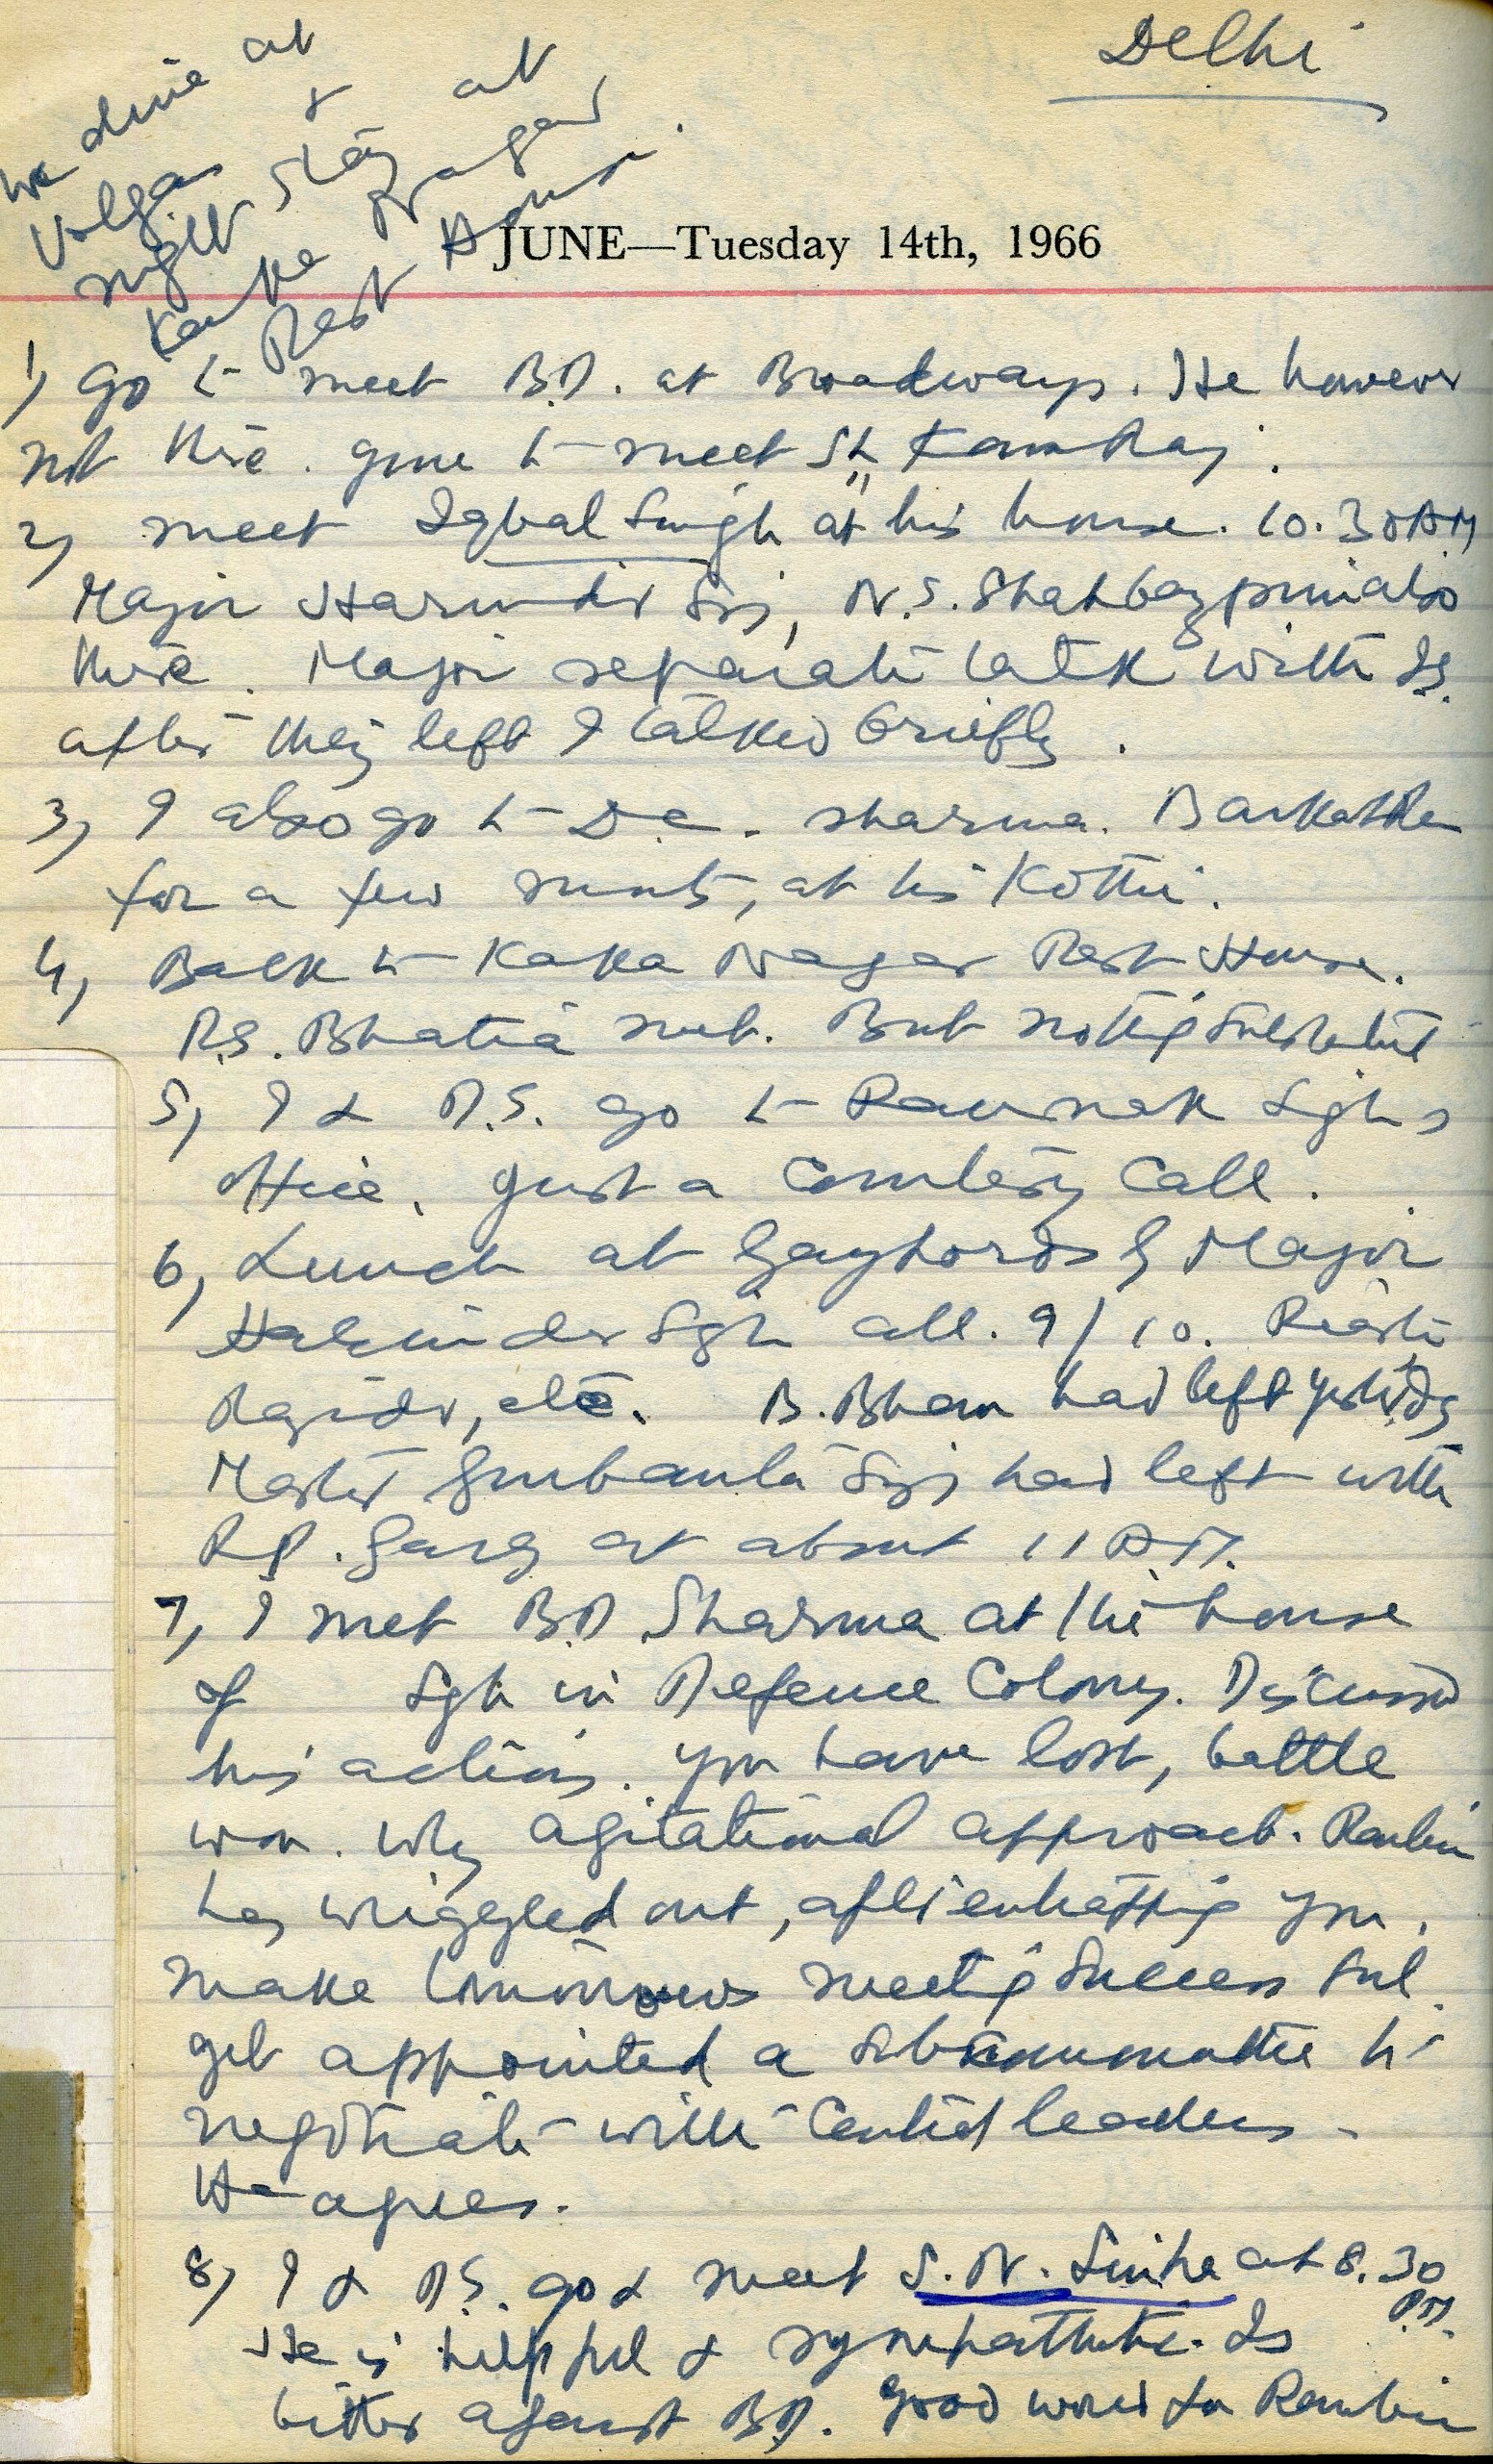 Delhi
we dine at
Volgas &
night stay at
Kaka Nagar
Rest House.
JUNE—Tuesday 14th, 1966
1) Go to meet B.D. at Broadways. He however
not there. gone to meet Sh Kamraj.
2) meet Iqbal Singh at his house. 10.30 AM
Major Harinder Sgh, N.S. Shahbazpuri also
there. Major separate talk with IS.
after they left I talked briefly.
3) I also go to D.C. Sharma.
for a few mnts, at his Kothi.
4) Back to Kaka Nagar Rest House.
R.S. Bhatia met. But nothing substantial
5) I & D.S. go to Raunak Sghs
office. Just a Courtesy Call.
6) Lunch at Gaylords by Major
Harinder Sgh all. 9/10.
etc. B. Bhan had left yesterday
Master Gurbanta Sgh had left with
R.P. Garg at about 11 P.M.
7) I met B.D Sharma at the house
of Sgh in Defence Colony. Discussed
his actions. You have lost, battle
won. Why agitational approach. Ranbir
has wriggled out, after enhatting you.
make tomorrows meeting Successful.
get appointed a Subcommittee to
negotiate with Central leaders -
He agrees.
8) I & D.S. go & meet S.N. Sinha at 8.30
P.M.
He is helpful & sympathetic. Is
bitter against BD. Good word for Ranbir